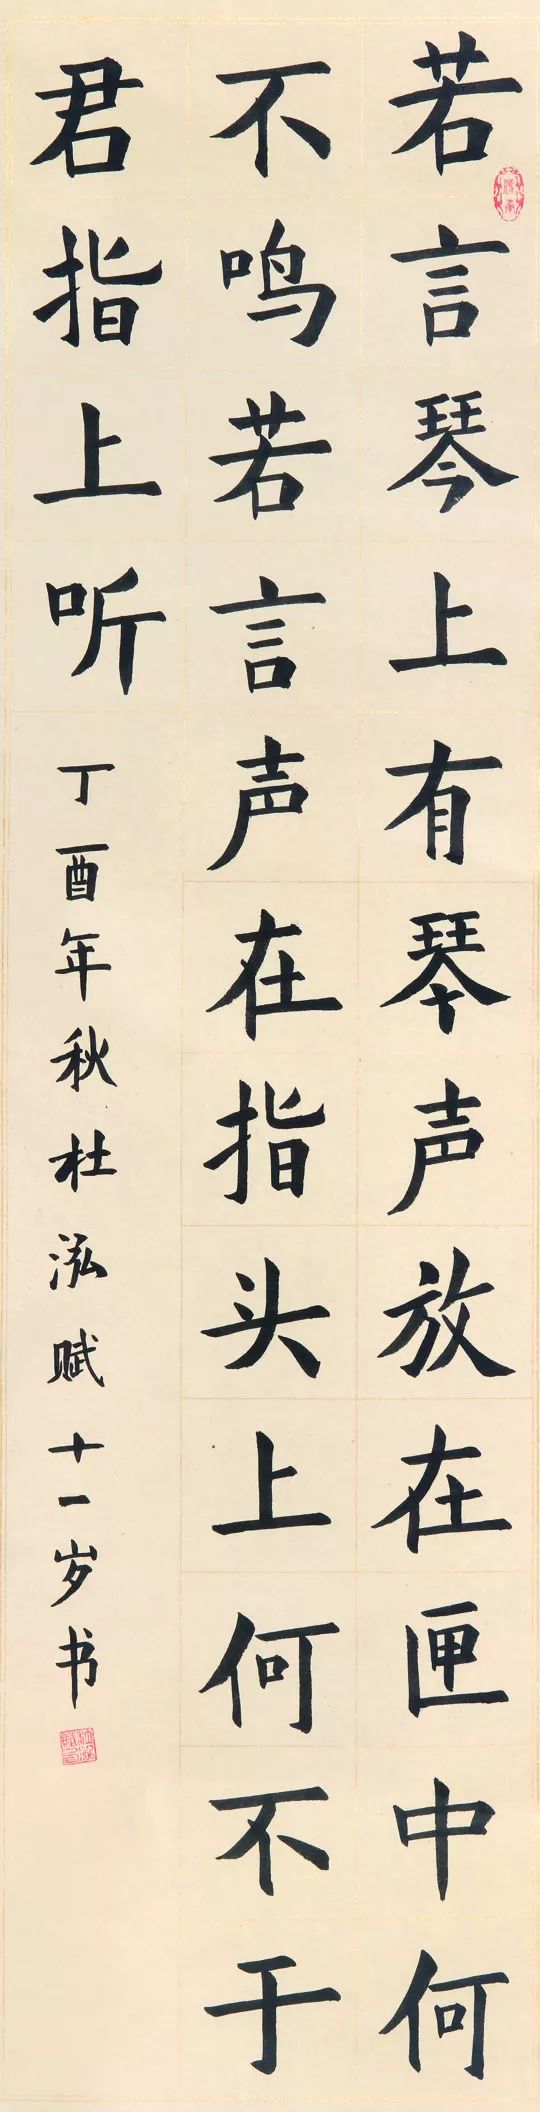 若言琴上有琴声放在匣中何
不鸣若言声在指头上何不于
君指上听
丁酉年秋杜泓赋十一岁书